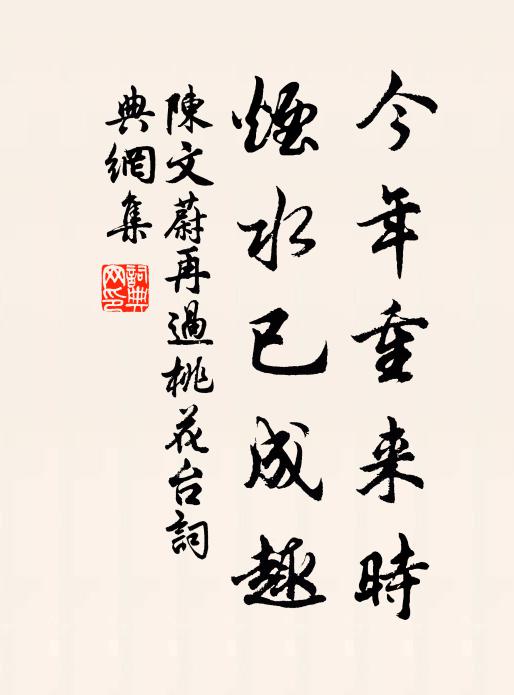 今年重来時
煙水已成趣
陳文蔚再過桃花台詞
典網集
詞典網印